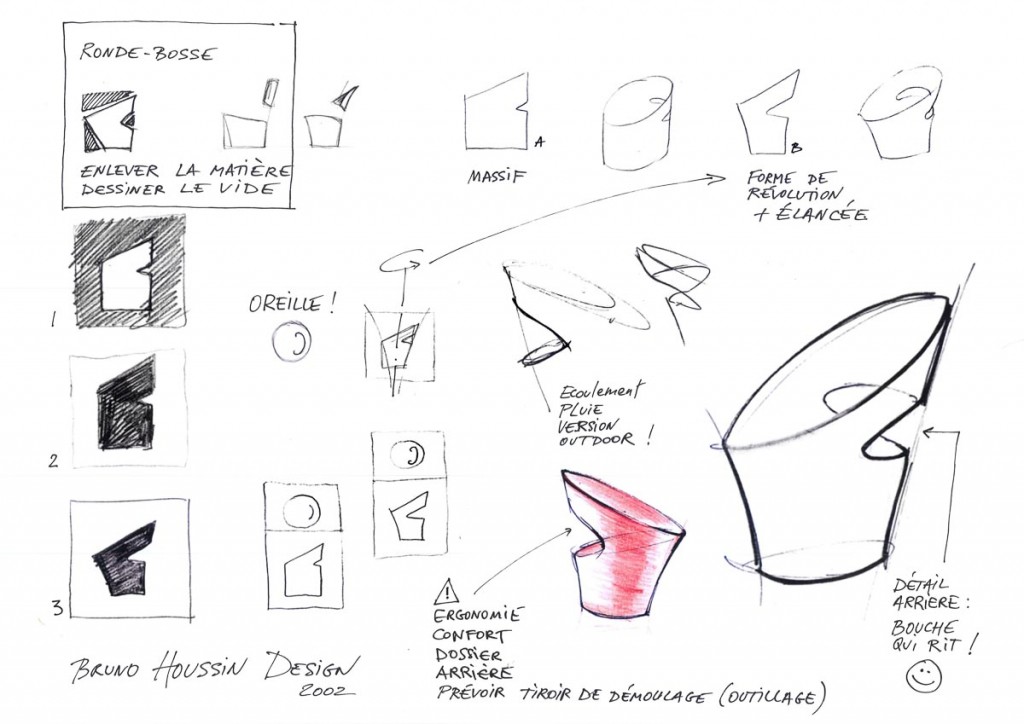 RONDE-BOSSE
ENLEVER LA MATIÈRE
DESSINER LE VIDE
A
MASSIF
B
FORME DE
RÉVOLUTION
+ ÉLANCÉE
1
OREILLE !
2
Ecoulement
PLUIE
VERSION
OUTDOOR !
3
ERGONOMIE
CONFORT
DOSSIER
ARRIÈRE
PRÉVOIR TIROIR DE DÉMOULAGE (OUTILLAGE)
DÉTAIL
ARRIERE :
BOUCHE
QUI RIT !
BRUNO HOUSSIN DESIGN
2002